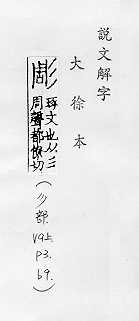 說文解字
大徐本
彫
琢文也从彡
周聲都僚切
(彡部. V9上. P3. b9.)